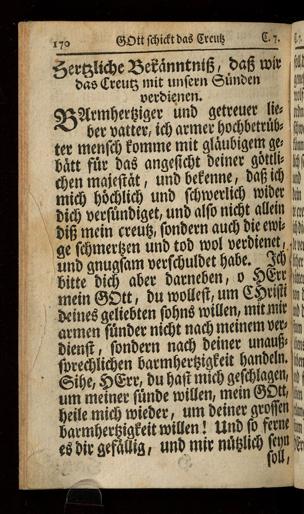 170 GOtt schickt das Creutz C. 7.
Hertzliche Bekänntniß, daß wir
das Creutz mit unsern Sünden
verdienen.
BArmhertziger und getreuer lie-
ber vatter, ich armer hochbetrüb-
ter mensch komme mit gläubigem ge-
bätt für das angesicht deiner göttli-
chen majestät, und bekenne, daß ich
mich höchlich und schwerlich wider
dich versündiget, und also nicht allein
diß mein creutz, sondern auch die ewi-
ge schmertzen und tod wol verdienet,
und gnugsam verschuldet habe. Ich
bitte dich aber darneben, o HErr
mein GOtt, du wollest, um CHristi
deines geliebten sohns willen, mit mir
armen sünder nicht nach meinem ver-
dienst, sondern nach deiner unauß-
sprechlichen barmhertzigkeit handeln.
Sihe, HErr, du hast mich geschlagen,
um meiner sünde willen, mein GOtt,
heile mich wieder, um deiner grossen
barmhertzigkeit willen! Und so ferne
es dir gefällig, und mir nützlich seyn
soll,